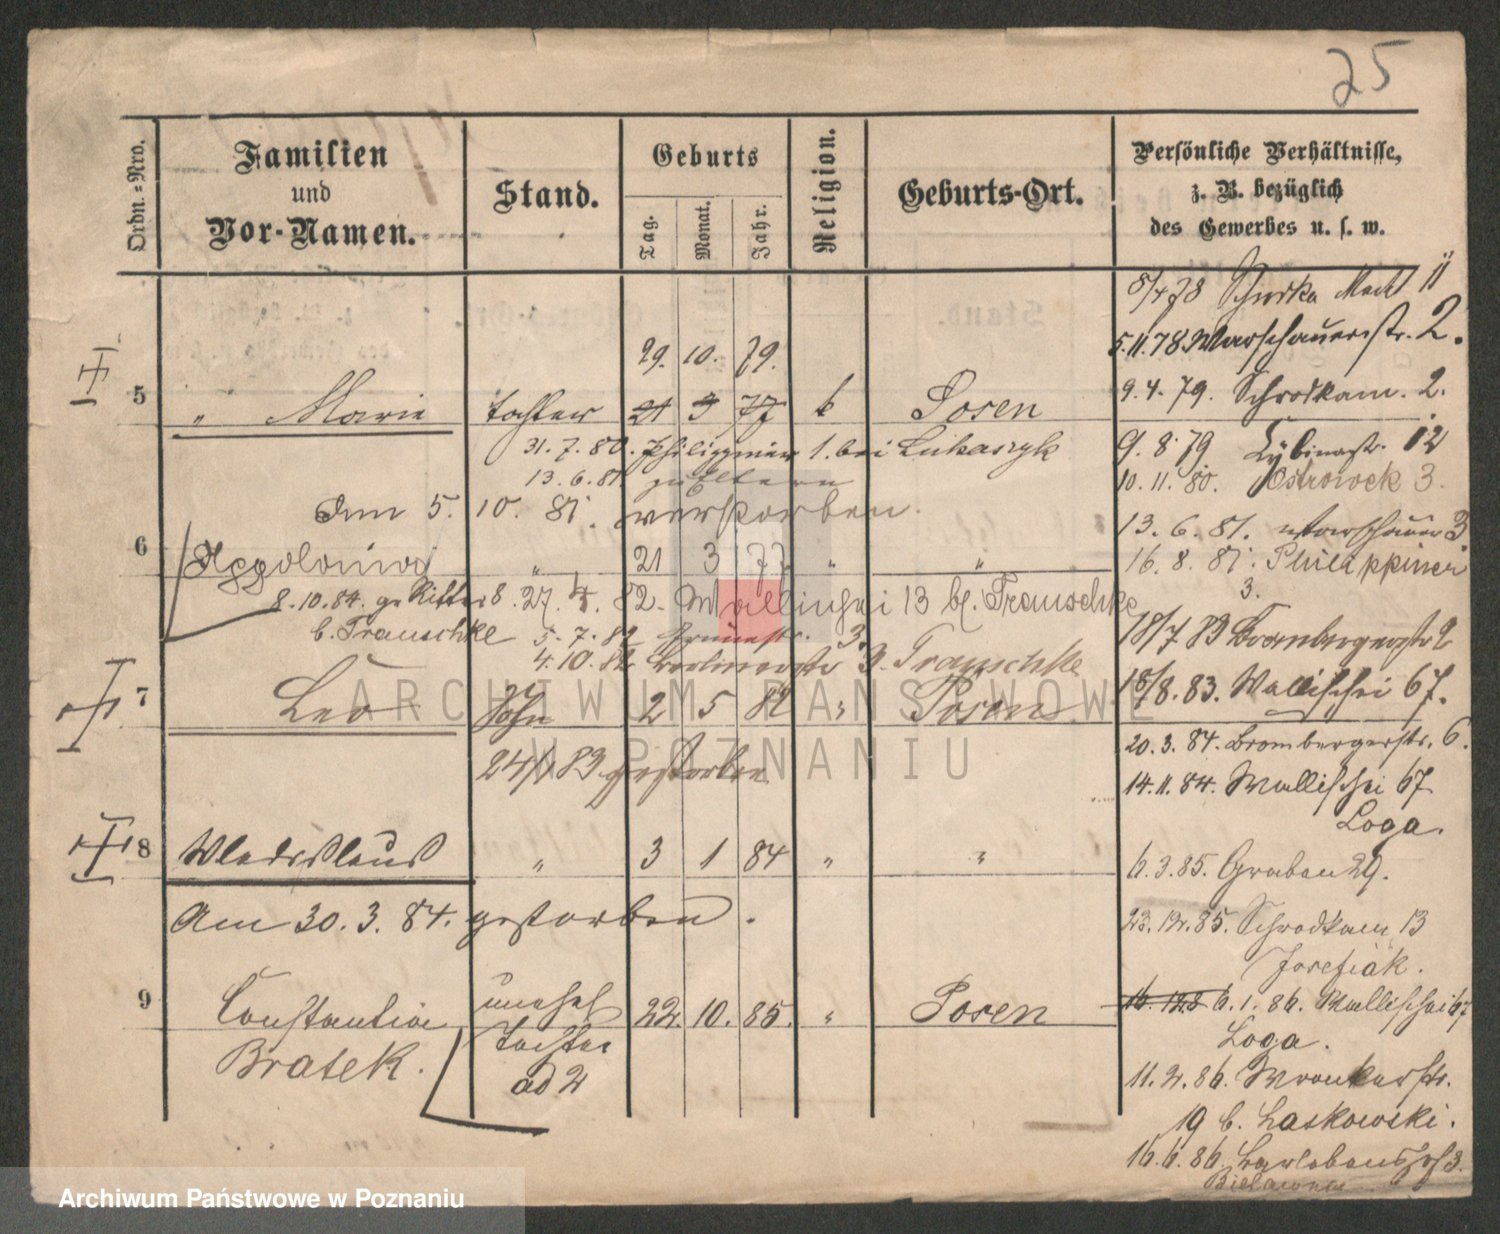 25
Ordn.-Nro.
Familien und Vor-Namen.
Stand.
Geburts
Tag.
Monat.
Jahr.
Religion.
Geburts-Ort.
Persönliche Verhältnisse, z. B. bezüglich des Gewerbes u. s. w.
8/4 78 Schrodka Markt 11
5.11.78 Warschauerstr. 2.
9.4.79. Schrodkam. 2.
9.8.79 12
10.11.80. Ostrowek 3.
13.6.81. Warschauer 3.
16.8.81. Philippiner 3.
18/7 83 Brombergerstr 2
18/8.83. Wallischei 67.
20.3.84. Brombergerstr. 6.
14.11.84. Wallischei 67
Loga.
6.3.85. Graben 29.
23.12.85. Schrodkam 13
Josefiak.
6.1.86. Wallischei 67
Loga.
11.2.86. Wronkerstr.
19 b. Laskowski.
16.6.86. 3.
29. 10. 79.
5 " Marie Tochter 21 3 77 k Posen
31.7.80. Philippiner 1. bei Lukaszyk
13.6.81. zu Eltern
Am 5. 10. 81. verstorben.
6 Appolonia " 21 3 77 " "
8.10.84. gr Ritter 8. 27. 4. 82. Wallischei 13 b. Trauschke
b. Trauschke 5.7.82 Grünestr. 3.
4.10.82 Berlinerstr 3. Trauschke
7 Leo Sohn 2 5 82 " Posen
gestorben
8 Wladislaus " 3 1 84 " "
Am 30. 3. 84. gestorben.
9 Constantia unehel 22. 10. 85. " Posen
Bratek. Tochter
ad 2
ARCHIWUM PAŃSTWOWE
W POZNANIU
Archiwum Państwowe w Poznaniu